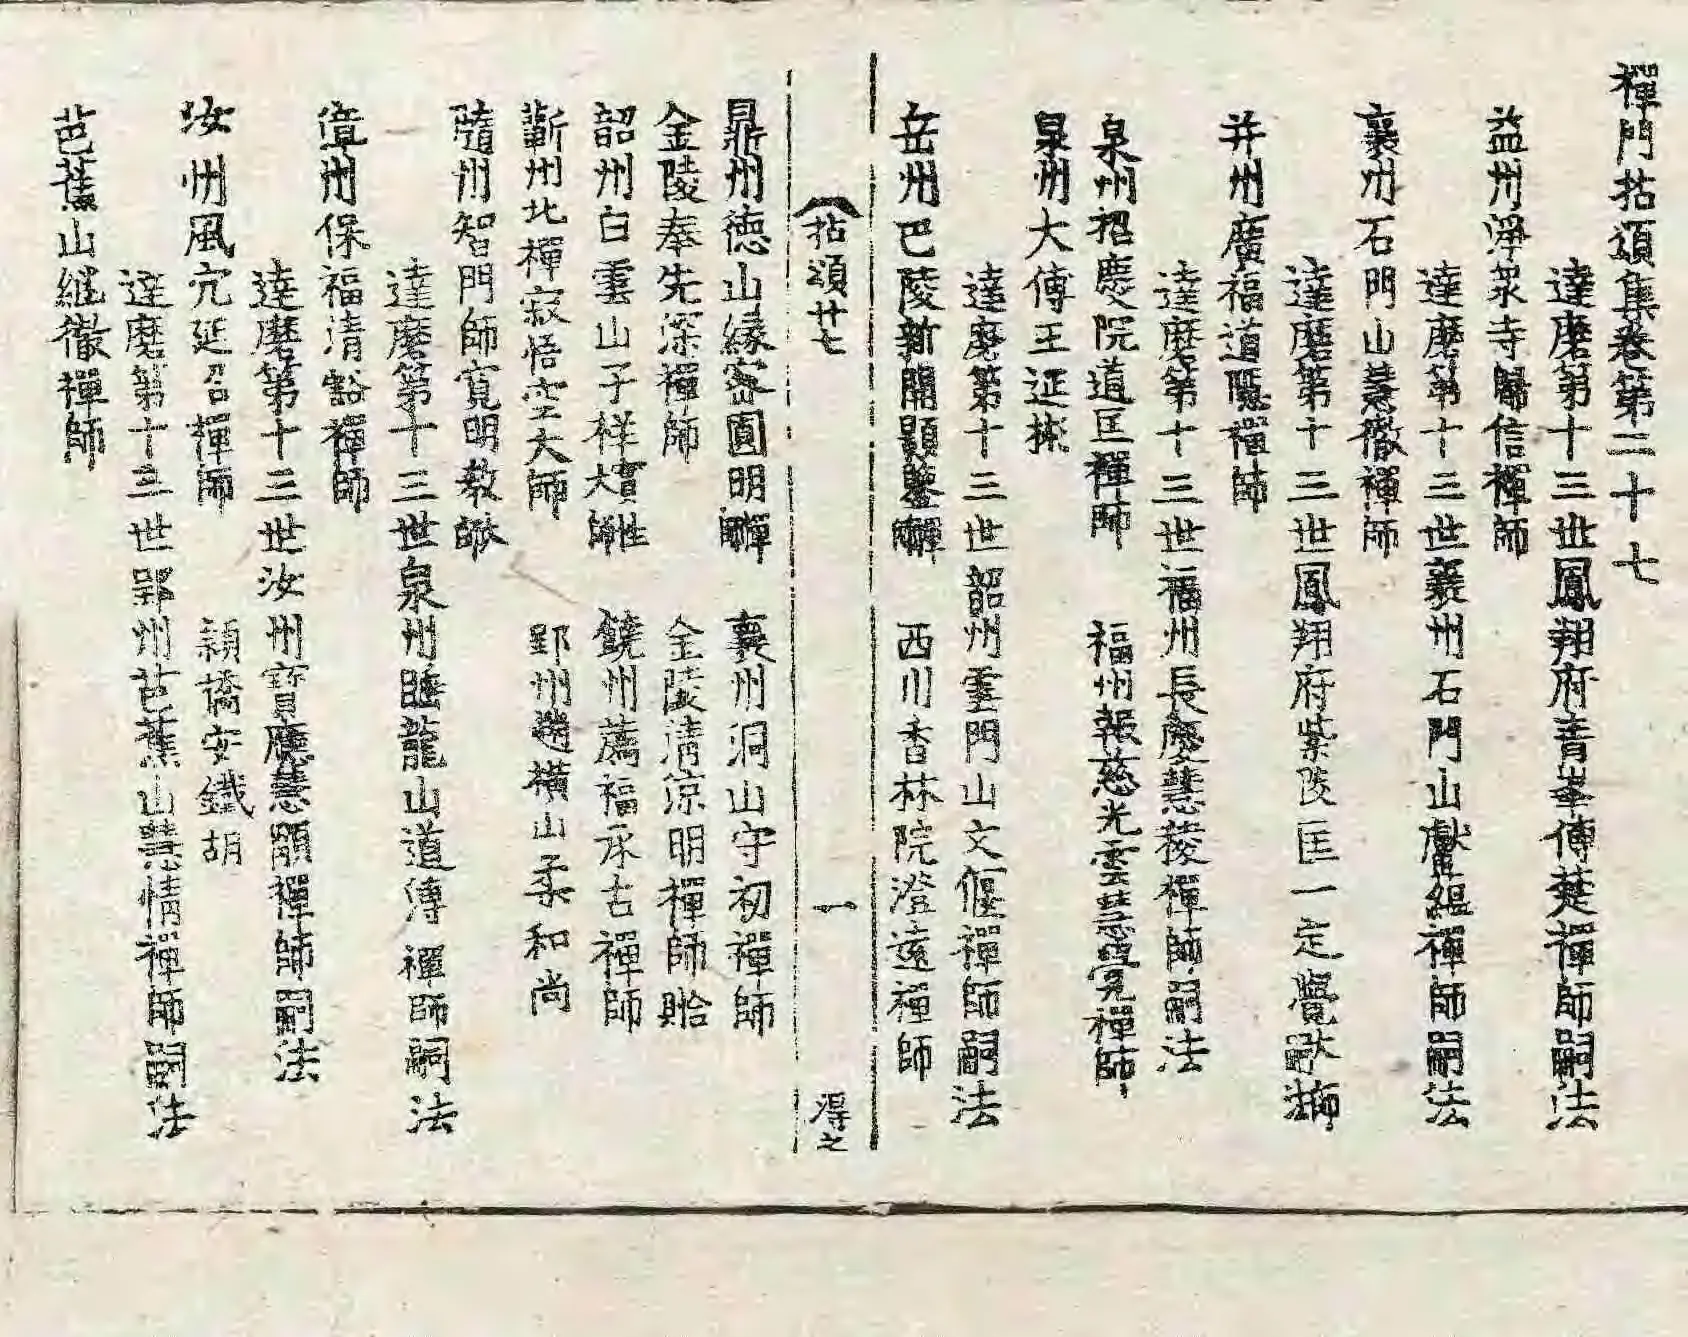 禪門拈頌集卷第二十七
達磨第十三世鳳翔府青峯傳楚禪師嗣法
益州淨衆寺歸信禪師
達磨第十三世襄州石門山獻蘊禪師嗣法
襄州石門山慧徹禪師
達磨第十三世鳳翔府紫陵匡一定覺大師嗣法
并州廣福道隱禪師
達磨第十三世福州長慶慧稜禪師嗣法
泉州招慶院道匡禪師 福州報慈光雲慧覺禪師
泉州大傅王延彬
達磨第十三世韶州雲門山文偃禪師嗣法
岳州巴陵新開顥鑒禪師 西川香林院澄遠禪師
拈頌廿七 一 淂之
鼎州德山緣密圓明禪師 襄州洞山守初禪師
金陵奉先深禪師 金陵淸凉明禪師
韶州白雲山子祥實性大師 饒州薦福承古禪師
蘄州北禪寂悟空大師 郢州趙橫山柔和尚
隨州智門師寬明教大師
達磨第十三世泉州睡龍山道溥禪師嗣法
漳州保福淸豁禪師
達磨第十三世汝州寶應慧顒禪師嗣法
汝州風穴延召禪師 頴橋安鐵胡
達磨第十三世郢州芭蕉山慧情禪師嗣法
芭蕉山繼徹禪師